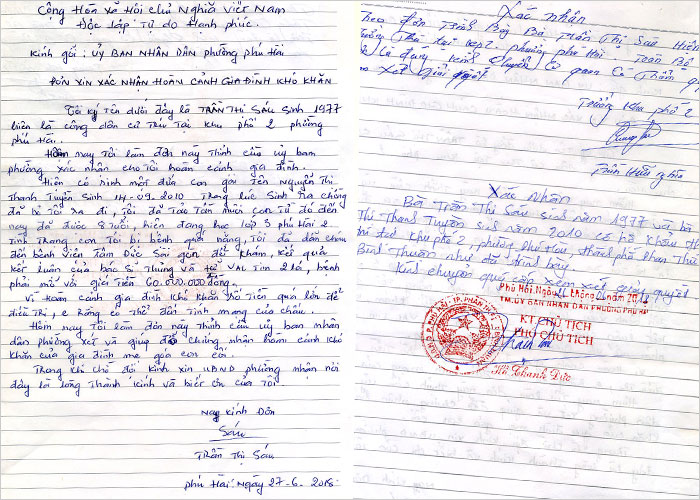 Cộng Hòa Xã Hội Chủ Nghĩa Việt Nam
Độc lập Tự do Hạnh phúc.
Kính gởi : ỦY BAN NHÂN DÂN phường phú Hài
ĐƠN XIN XÁC NHẬN HOÀN CẢNH GIA ĐÌNH KHÓ KHĂN
Tôi ký tên dưới đây là TRẦN THỊ SÁU Sinh 1977
hiện là công dân cư trú Tại khu phố 2 phường
phú Hài.
Hôm nay Tôi làm đơn này Thỉnh cầu uỷ ban
phường xác nhận cho Tôi hoàn cảnh gia đình.
Hiện có sinh một đứa con gái Tên Nguyễn Thị
Thanh Tuyền Sinh 14-09-2010 Trong lúc Sinh ra chồng
đã bỏ Tôi ra đi, Tôi đã Tảo Tần nuôi con Từ đó đến
nay đã được 8 Tuổi, hiện đang học lớp 3 phú Hài 2.
Tình Trạng con Tôi bị bệnh quá nặng, Tôi đã dẫn cháu
đến bệnh viện Tâm Đức Sài gòn để khám, kết quả
kết luận của bác Sĩ Thủng và VAL Tim 2 lá, bệnh
phải mổ với giá Tiền 60.000.000 đồng.
Vì hoàn cảnh gia đình khó khăn số Tiền quá lớn để
điều Trị, e Rằng có thể đến Tính mạng của cháu.
Hôm nay Tôi làm đơn này Thỉnh cầu uỷ ban nhân
dân phường xét và giúp đỡ chứng nhận hoàn cảnh khó
khăn của gia đình mẹ góa con côi.
Trong khi chờ đợi kính xin UBND phường nhận nơi
đây là lòng Thành kính và biết ơn của Tôi.
Nay Kính Đơn
Sáu
Trần Thị Sáu
phú Hài Ngày 27-6-2018
Xác nhận
Theo đơn Trình Bày Bà Trần Thị Sáu Hiện
Thường Trú tại kp2 phường phú Hài. Trên
là đúng kính chuyển Cơ quan Có Thẩm
xét giải quyết
Trưởng khu phố 2
Trần Hữu Nghĩa
Xác Nhận
Bà Trần Thị Sáu sinh năm 1977 và bà
Thị Thanh Tuyền sinh năm 2010 có hộ khẩu
khu phố 2, phường Phú Hài, thành phố Phan Thiết
Bình Thuận như đã trình bày.
Kính chuyển quý cấp xem xét giải quyết
Phú Hài, Ngày tháng năm 2018
TM. ỦY BAN NHÂN DÂN PHƯỜNG PHÚ HÀI
KT. CHỦ TỊCH
PHÓ CHỦ TỊCH
Hồ Thanh Đức